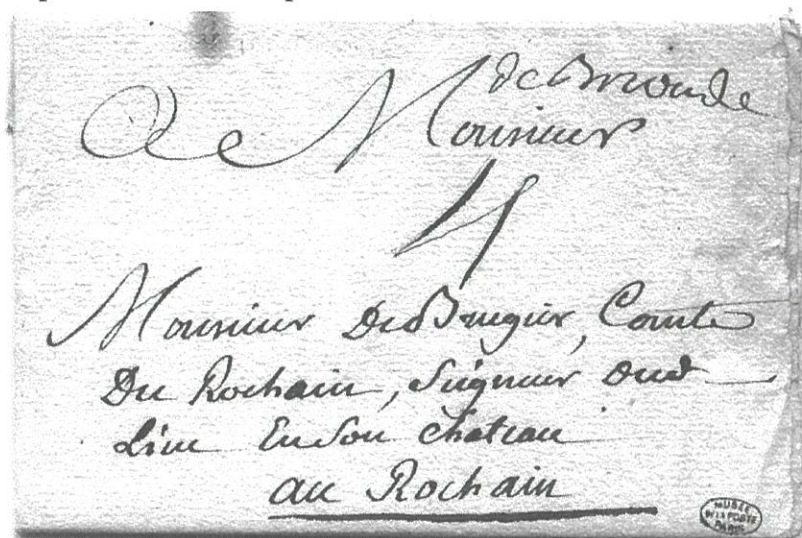 de Brioude
A Monsieur
4
Monsieur De Brugier, Comte
Du Rochain, Seigneur Dud
Lieu En Son Chateau
au Rochain
MUSEE
DE LA POSTE
PARIS